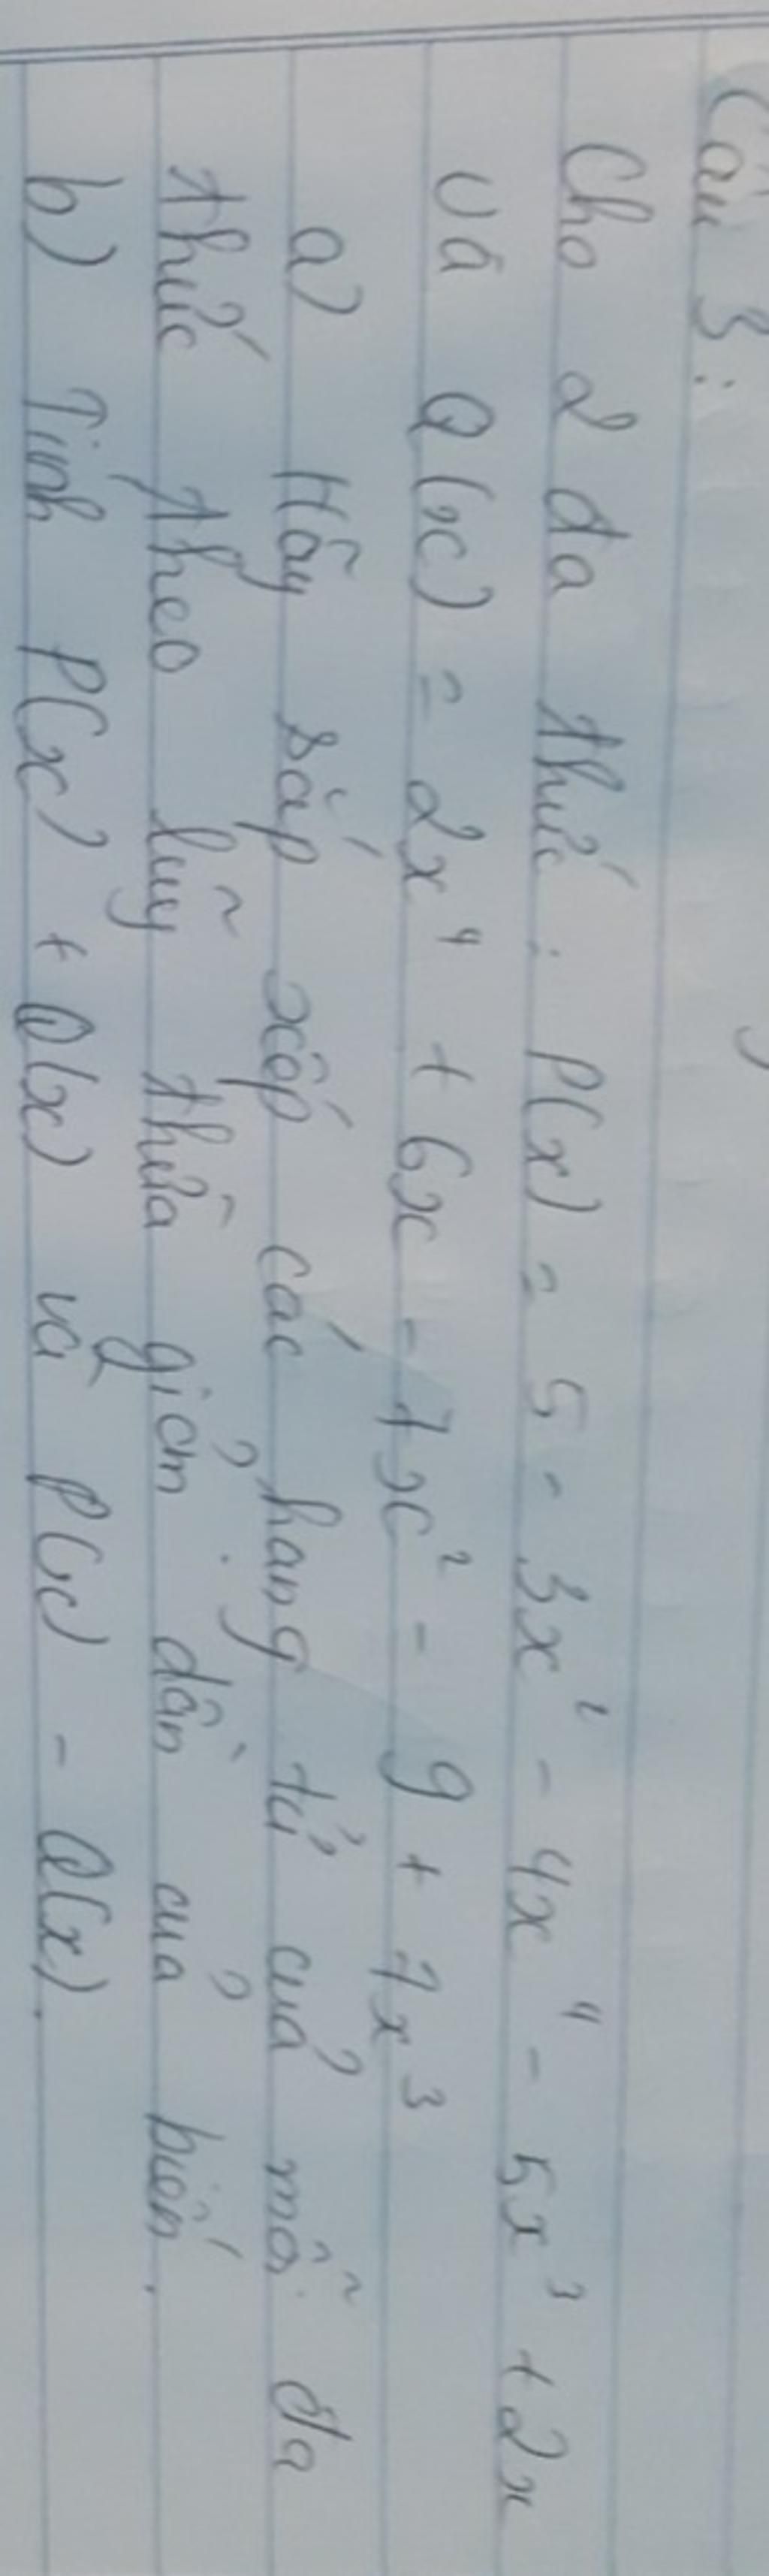 Câu 3 :
Cho 2 đa thức : P(x) = 5 - 3x² - 4x⁴ - 5x³ + 2x
và Q(x) = 2x⁴ + 6x - 7x² - 9 + 7x³
a) Hãy sắp xếp các hạng tử của mỗi đa
thức theo luỹ thừa giảm dần của biến.
b) Tính P(x) + Q(x) và P(x) - Q(x).